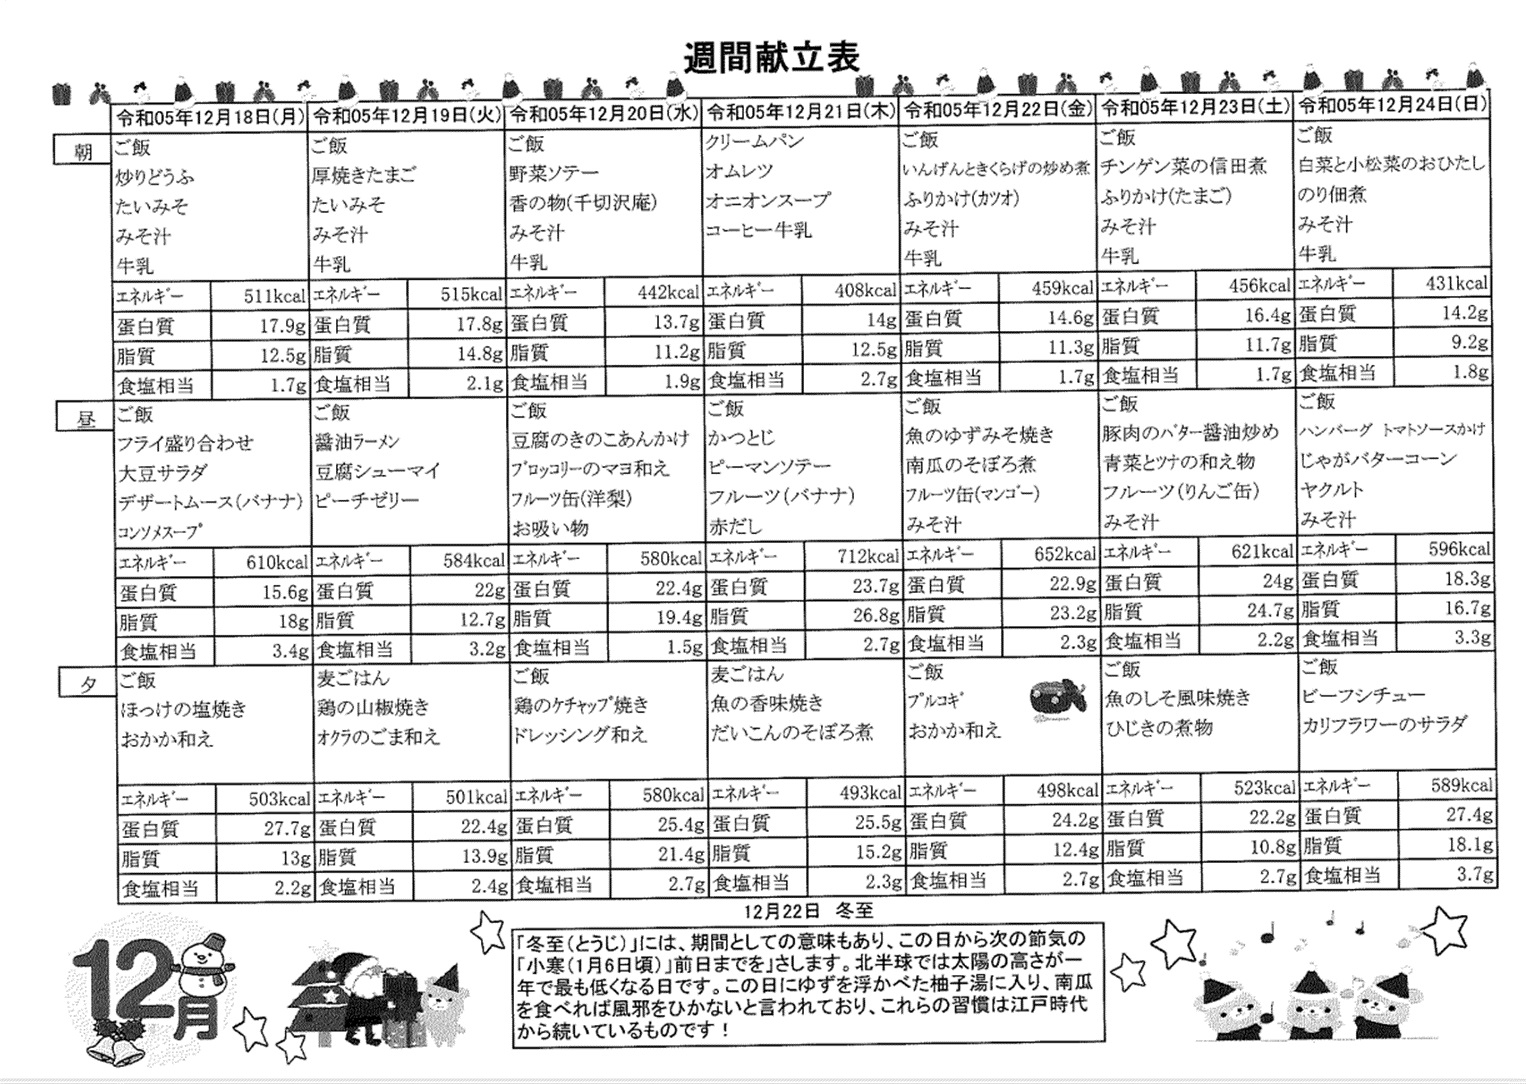 週間献立表
令和05年12月18日(月) 令和05年12月19日(火) 令和05年12月20日(水) 令和05年12月21日(木) 令和05年12月22日(金) 令和05年12月23日(土) 令和05年12月24日(日)
朝
ご飯 ご飯 ご飯 クリームパン ご飯 ご飯 ご飯
炒りどうふ 厚焼きたまご 野菜ソテー オムレツ いんげんときくらげの炒め煮 チンゲン菜の信田煮 白菜と小松菜のおひたし
たいみそ たいみそ 香の物(千切沢庵) オニオンスープ ふりかけ(カツオ) ふりかけ(たまご) のり佃煮
みそ汁 みそ汁 みそ汁 コーヒー牛乳 みそ汁 みそ汁 みそ汁
牛乳 牛乳 牛乳 牛乳 牛乳 牛乳
エネルギー 511kcal エネルギー 515kcal エネルギー 442kcal エネルギー 408kcal エネルギー 459kcal エネルギー 456kcal エネルギー 431kcal
蛋白質 17.9g 蛋白質 17.8g 蛋白質 13.7g 蛋白質 14g 蛋白質 14.6g 蛋白質 16.4g 蛋白質 14.2g
脂質 12.5g 脂質 14.8g 脂質 11.2g 脂質 12.5g 脂質 11.3g 脂質 11.7g 脂質 9.2g
食塩相当 1.7g 食塩相当 2.1g 食塩相当 1.9g 食塩相当 2.7g 食塩相当 1.7g 食塩相当 1.7g 食塩相当 1.8g
昼
ご飯 ご飯 ご飯 ご飯 ご飯 ご飯 ご飯
フライ盛り合わせ 醤油ラーメン 豆腐のきのこあんかけ かつとじ 魚のゆずみそ焼き 豚肉のバター醤油炒め ハンバーグ トマトソースかけ
大豆サラダ 豆腐シューマイ ブロッコリーのマヨ和え ピーマンソテー 南瓜のそぼろ煮 青菜とツナの和え物 じゃがバターコーン
デザートムース(バナナ) ピーチゼリー フルーツ缶(洋梨) フルーツ(バナナ) フルーツ缶(マンゴー) フルーツ(りんご缶) ヤクルト
コンソメスープ お吸い物 赤だし みそ汁 みそ汁 みそ汁
エネルギー 610kcal エネルギー 584kcal エネルギー 580kcal エネルギー 712kcal エネルギー 652kcal エネルギー 621kcal エネルギー 596kcal
蛋白質 15.6g 蛋白質 22g 蛋白質 22.4g 蛋白質 23.7g 蛋白質 22.9g 蛋白質 24g 蛋白質 18.3g
脂質 18g 脂質 12.7g 脂質 19.4g 脂質 26.8g 脂質 23.2g 脂質 24.7g 脂質 16.7g
食塩相当 3.4g 食塩相当 3.2g 食塩相当 1.5g 食塩相当 2.7g 食塩相当 2.3g 食塩相当 2.2g 食塩相当 3.3g
夕
ご飯 麦ごはん ご飯 麦ごはん ご飯 ご飯 ご飯
ほっけの塩焼き 鶏の山椒焼き 鶏のケチャップ焼き 魚の香味焼き プルコギ 魚のしそ風味焼き ビーフシチュー
おかか和え オクラのごま和え ドレッシング和え だいこんのそぼろ煮 おかか和え ひじきの煮物 カリフラワーのサラダ
エネルギー 503kcal エネルギー 501kcal エネルギー 580kcal エネルギー 493kcal エネルギー 498kcal エネルギー 523kcal エネルギー 589kcal
蛋白質 27.7g 蛋白質 22.4g 蛋白質 25.4g 蛋白質 25.5g 蛋白質 24.2g 蛋白質 22.2g 蛋白質 27.4g
脂質 13g 脂質 13.9g 脂質 21.4g 脂質 15.2g 脂質 12.4g 脂質 10.8g 脂質 18.1g
食塩相当 2.2g 食塩相当 2.4g 食塩相当 2.7g 食塩相当 2.3g 食塩相当 2.7g 食塩相当 2.7g 食塩相当 3.7g
12月22日 冬至
「冬至(とうじ)」には、期間としての意味もあり、この日から次の節気の
「小寒(1月6日頃)」前日までを」さします。北半球では太陽の高さが一
年で最も低くなる日です。この日にゆずを浮かべた柚子湯に入り、南瓜
を食べれば風邪をひかないと言われており、これらの習慣は江戸時代
から続いているものです！
12月